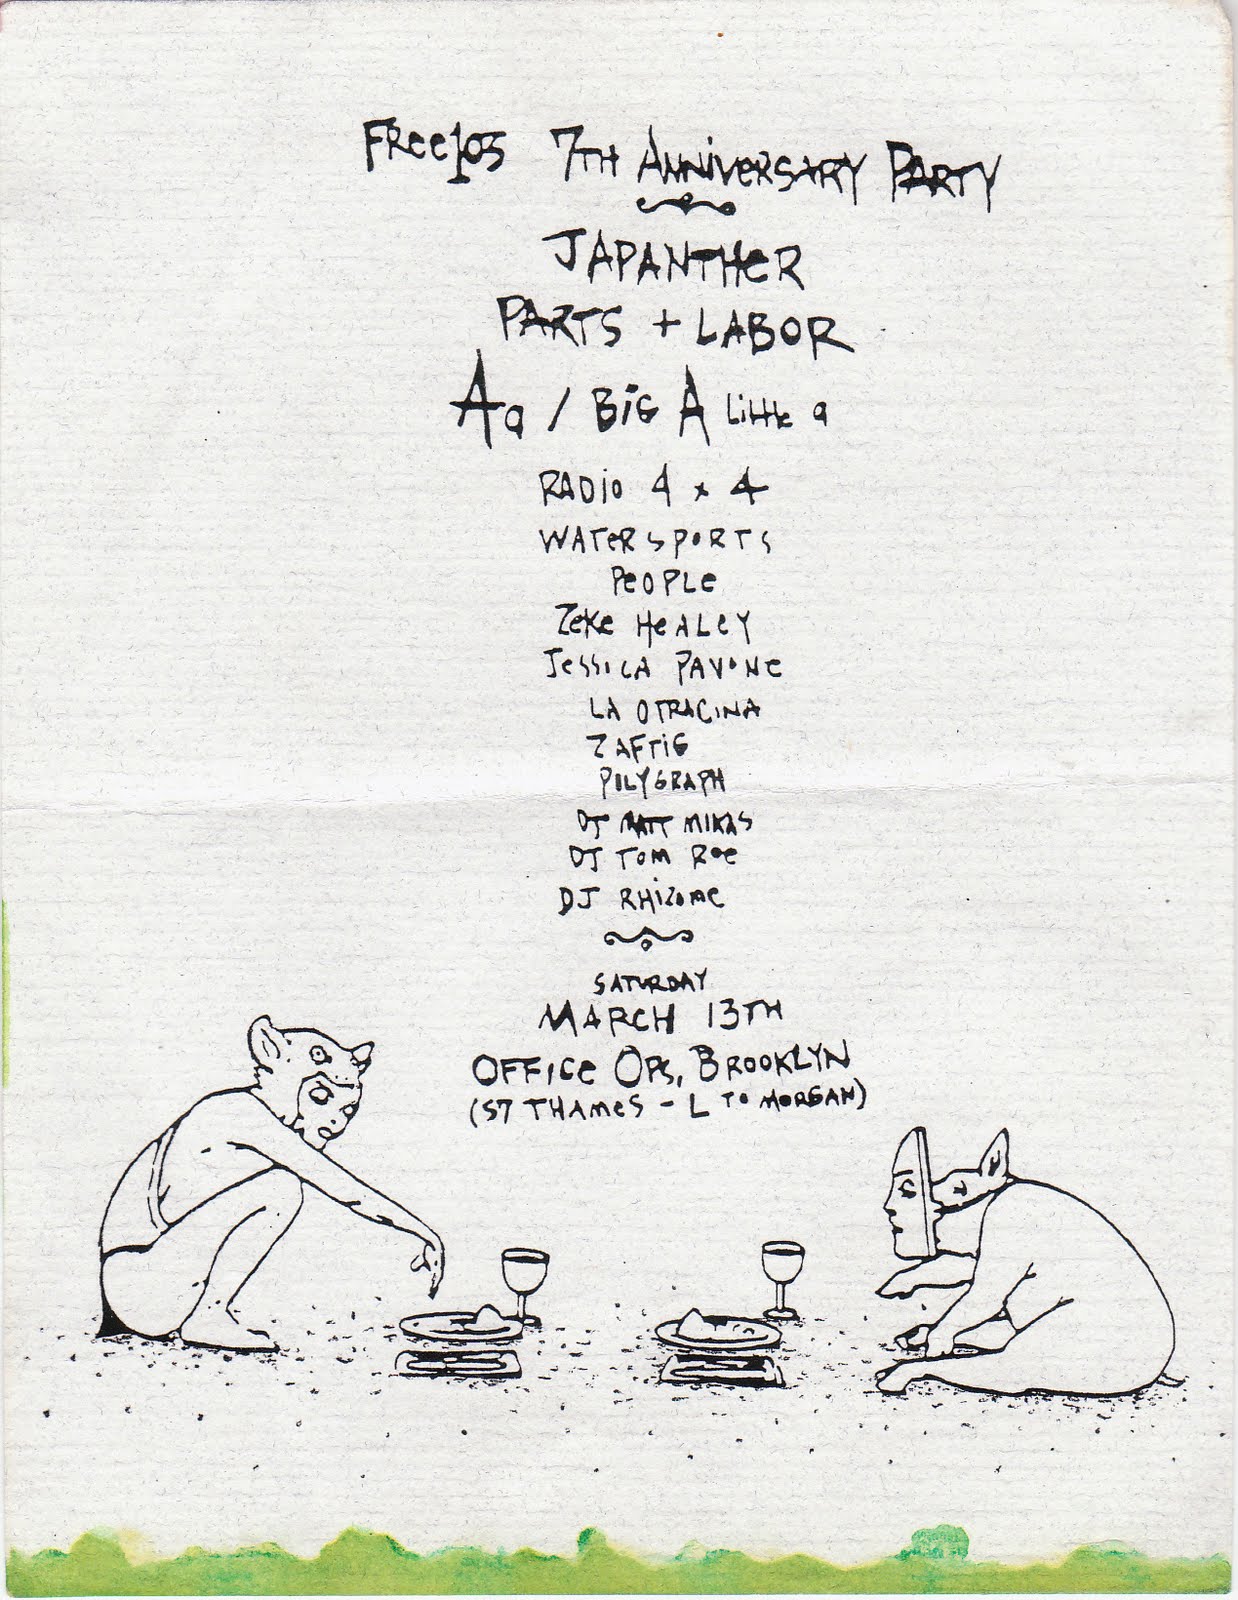 FRee103 7TH ANNiVeRSARY PARTY
JAPANTHeR
PARTS + LABOR
Aa / BiG A LittLe a
RADiO 4 x 4
WATeRSPORTS
PeOPLe
ZeKe HeALeY
JeSSiCA PAVONe
LA OTRACiNA
ZAFTiG
POLYGRAPH
DJ MATT MiKAS
DJ TOM ROe
DJ RHiZOMe
SATURDAY
MARCH 13TH
OFFiCe OPS, BROOKLYN
(57 THAMeS - L TO MORGAN)